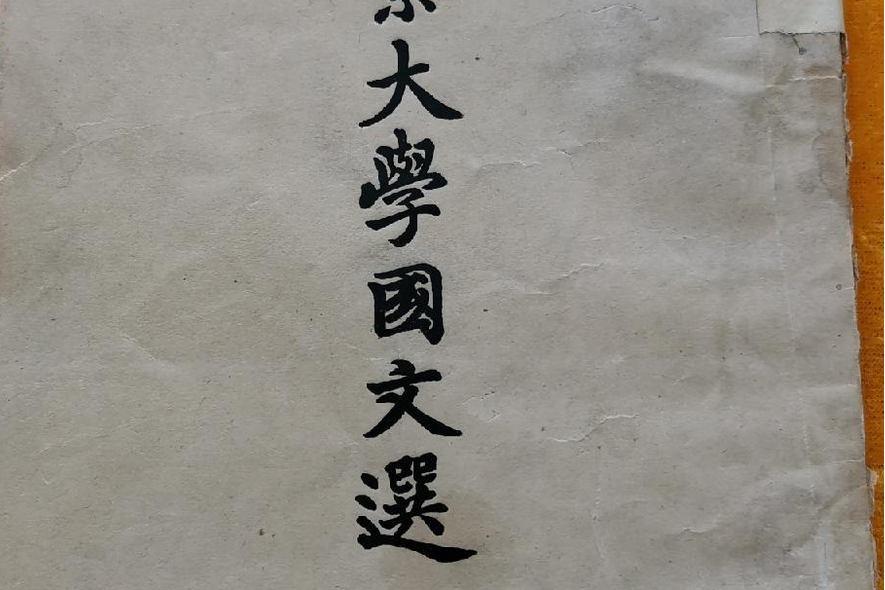 大學國文選